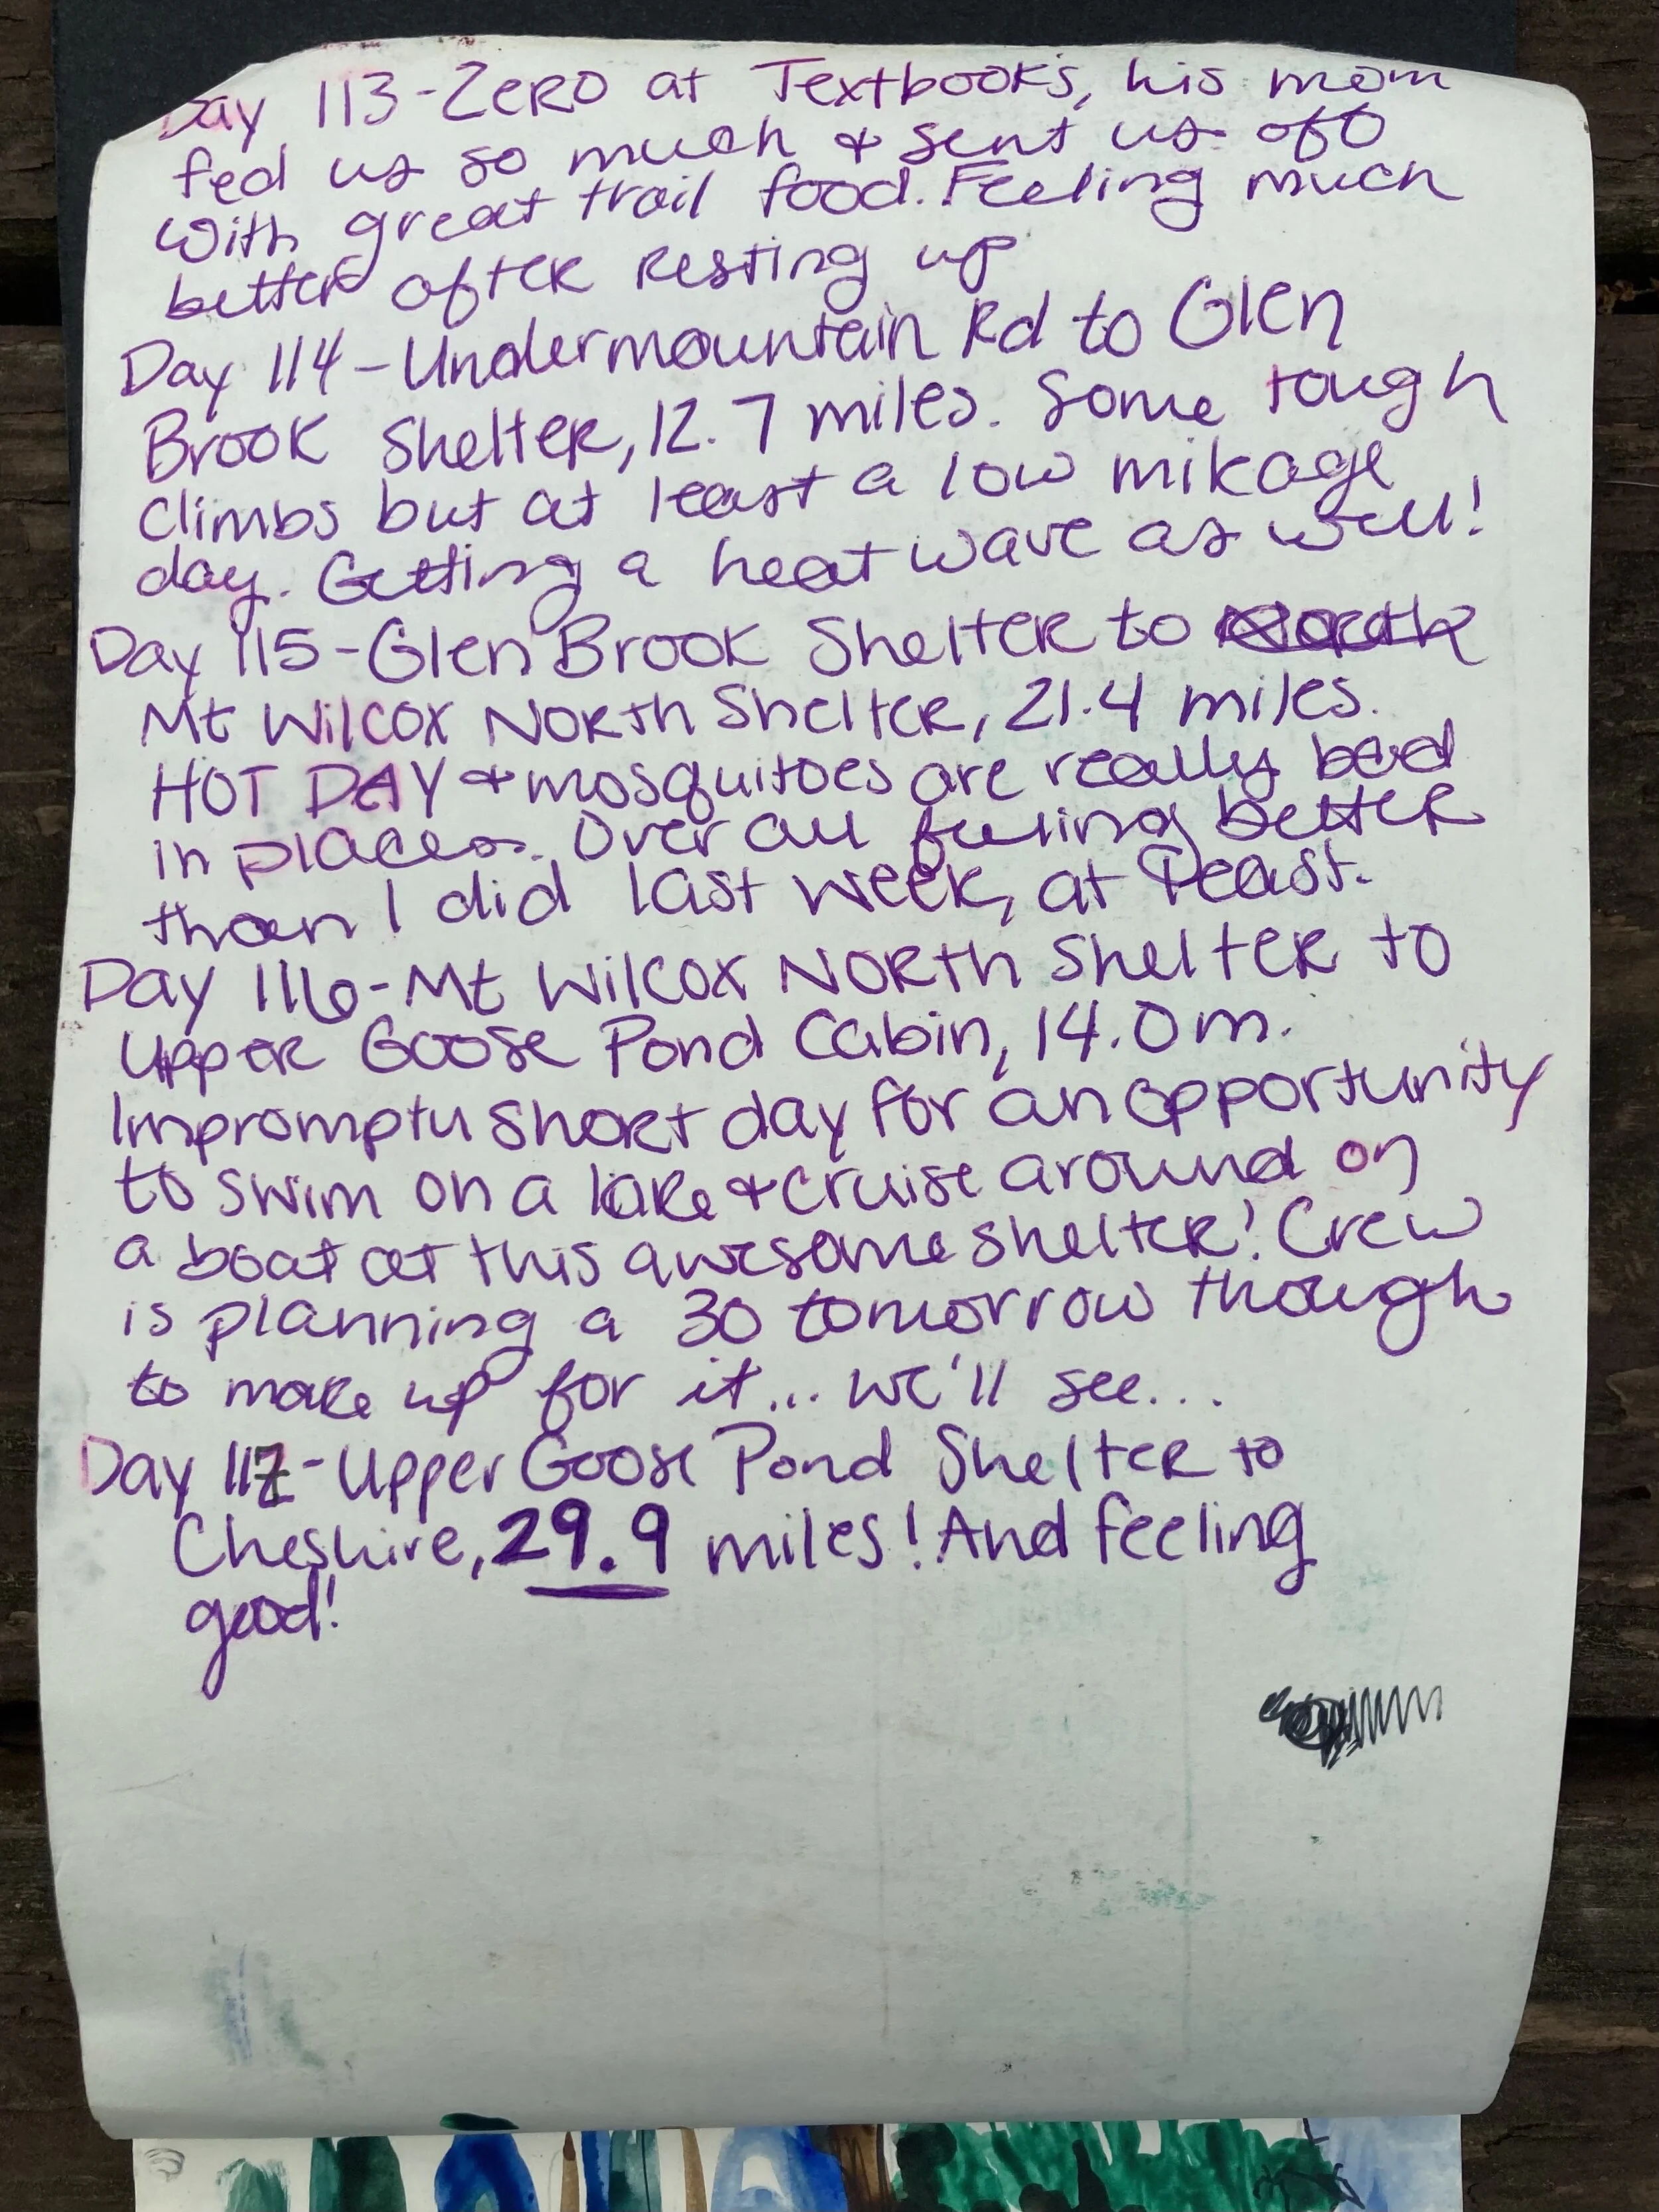 Day 113-Zero at Textbook's, his mom
fed us so much & sent us off
with great trail food. Feeling much
better after resting up
Day 114-Undermountain Rd to Glen
Brook Shelter, 12.7 miles. Some tough
climbs but at least a low mikage
day. Getting a heat wave as well!
Day 115-Glen Brook Shelter to
Mt Wilcox North Shelter, 21.4 miles.
HOT DAY & mosquitoes are really bad
in places. Over all feeling better
than I did last week, at least.
Day 116-Mt Wilcox North Shelter to
Upper Goose Pond Cabin, 14.0m.
Impromptu short day for an opportunity
to swim on a lake & cruise around on
a boat at this awesome shelter! Crew
is planning a 30 tomorrow though
to make up for it... we'll see...
Day 117-Upper Goose Pond Shelter to
Cheshire, 29.9 miles! And feeling
good!